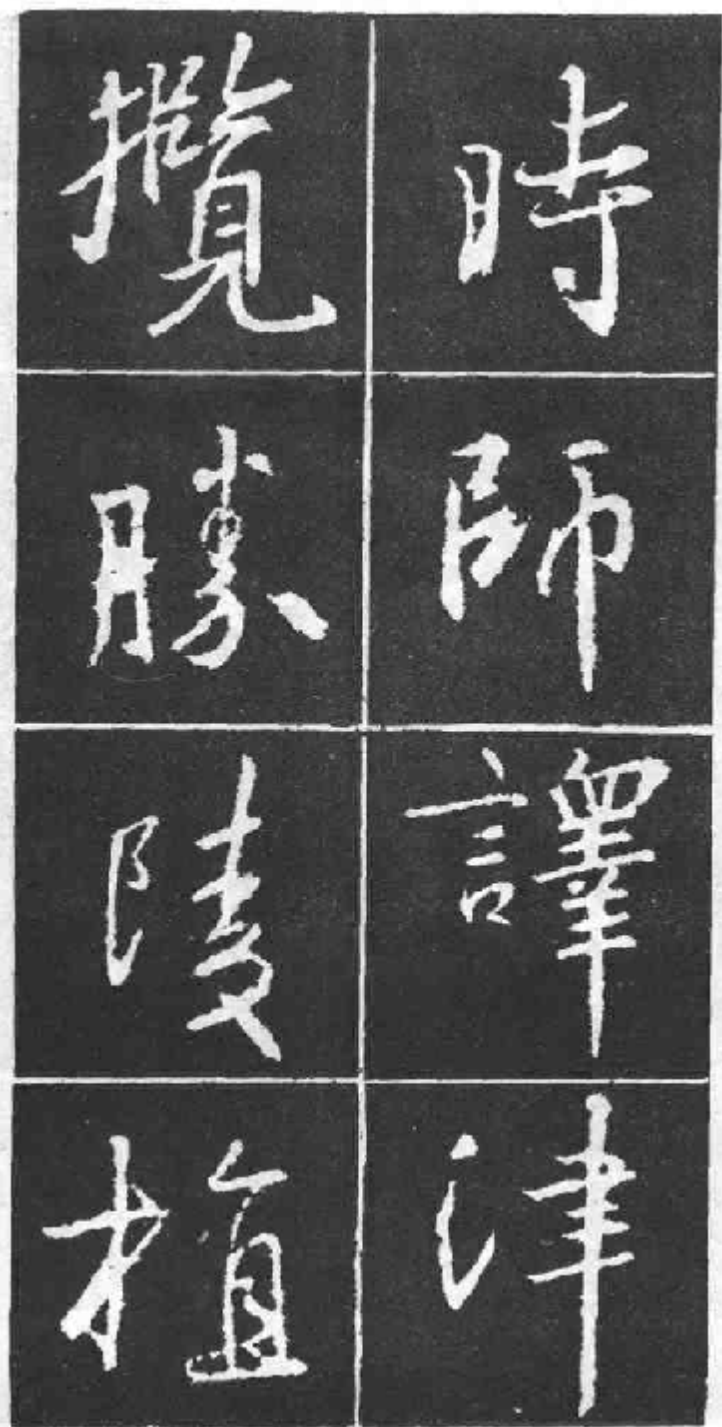 時師譯津
攬勝陵植